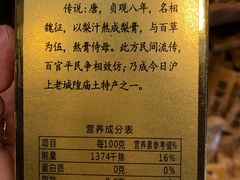 传说：唐，贞观八年，名相
魏征，以梨汁熬成梨膏，与百草
为伍，熬膏侍母。此方民间流传，
百官平民争相效仿；乃成今日沪
上老城隍庙土特产之一。
营养成分表
项目 每100克 营养素参考值%
能量 1374千焦 16%
蛋白质 0克 0%